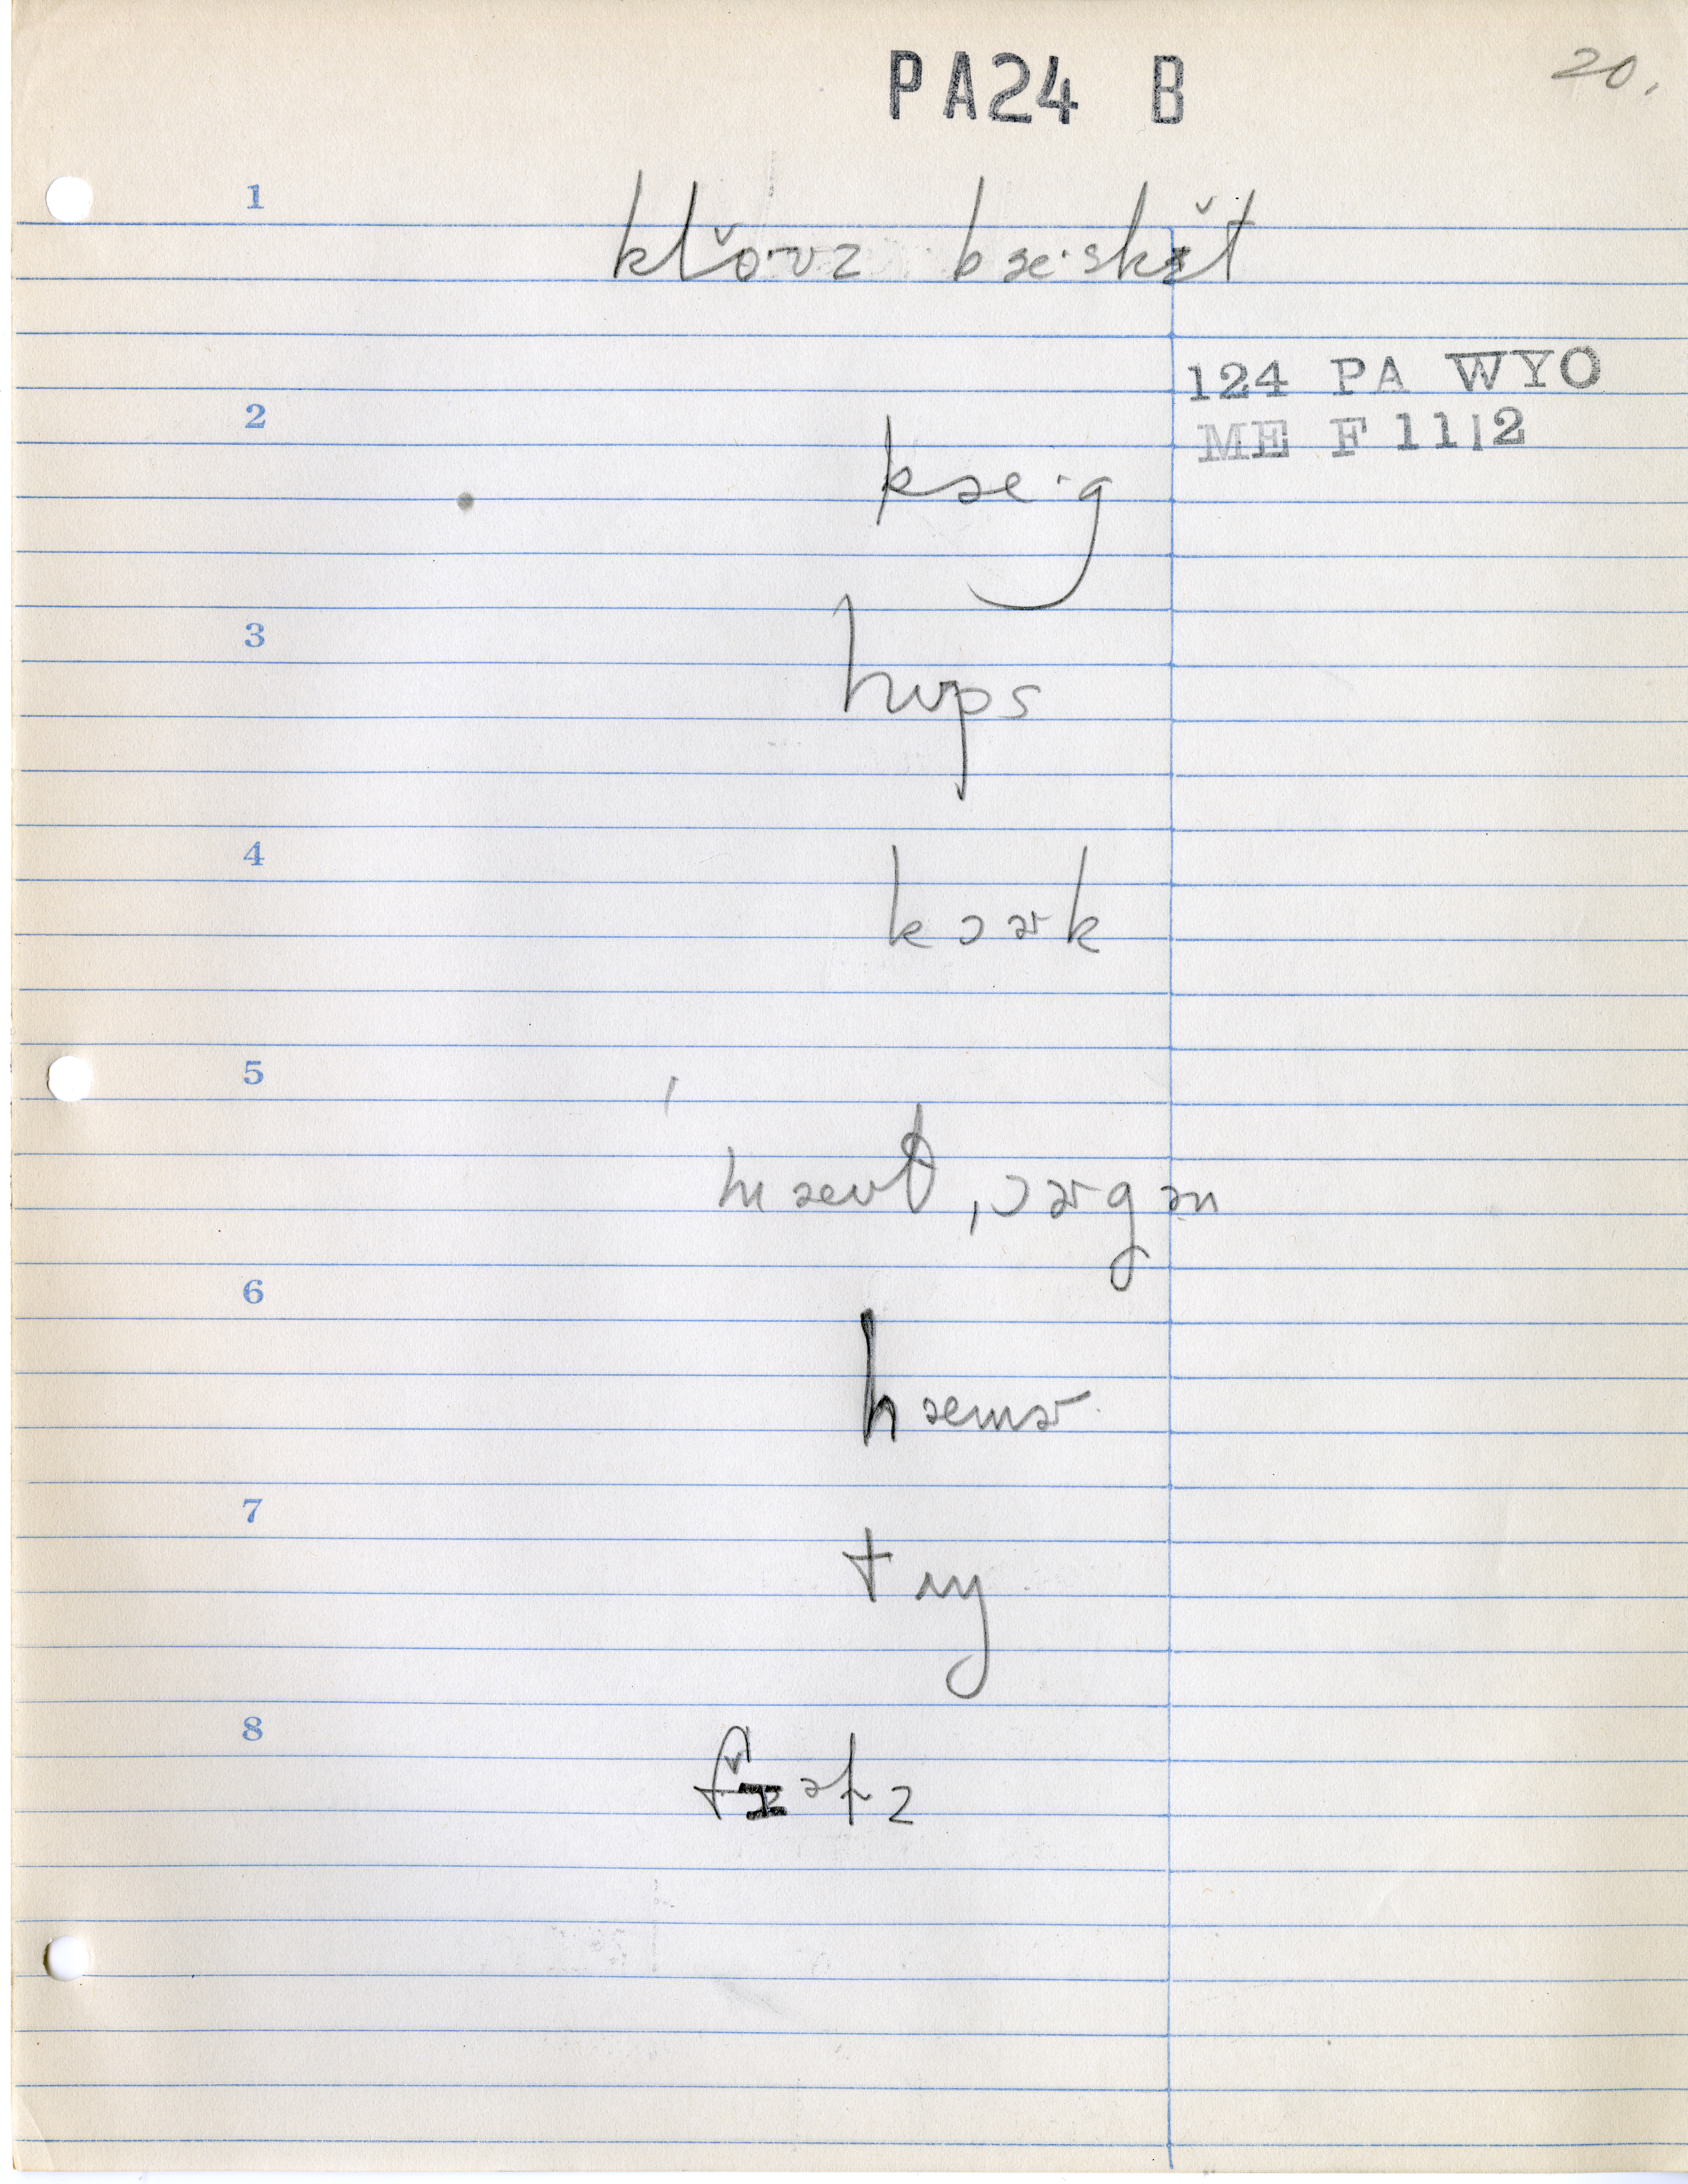 PA24 B
20.
1
kl̆o·ʊz bæ·skɪ̆t
124 PA WYO
ME F 11|2
2
kæ·g
3
hʊps
4
kɔɚk
5
mæʊt ˌɔɚgən
6
hæmɚ
7
tʌy
8
fɪ̆əɫz